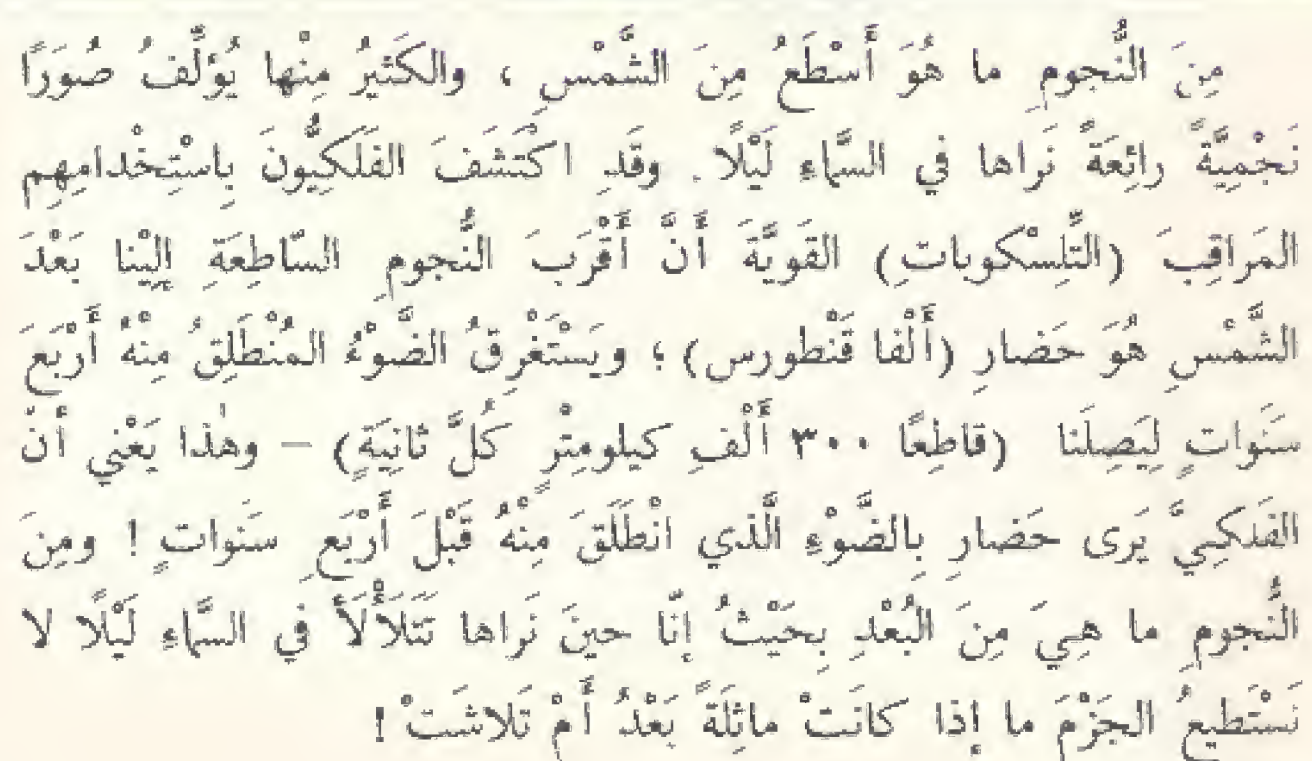 مِنَ النُّجومِ ما هُوَ أَسْطَعُ مِنَ الشَّمْسِ ، والكَثيرُ مِنْها يُؤلِّفُ صُوَرًا
نَجْمِيَّةً رائِعَةً نَراها في السَّماءِ لَيْلًا . وقَدِ اكْتَشَفَ الفَلَكِيُّونَ بِاسْتِخْدامِهِم
المَراقِبَ (التِّلِسْكوباتِ) القَوِيَّةَ أَنَّ أَقْرَبَ النُّجومِ السّاطِعَةِ إِلَيْنا بَعْدَ
الشَّمْسِ هُوَ حَضارِ (أَلْفا قَنْطورس) ؛ ويَسْتَغْرِقُ الضَّوْءُ المُنْطَلِقُ مِنْهُ أَرْبَعَ
سَنَواتٍ لِيَصِلَنا (قاطِعًا ٣٠٠ أَلْفِ كيلومِتْرٍ كُلَّ ثانِيَةٍ) – وهٰذا يَعْني أَنَّ
الفَلَكِيَّ يَرى حَضارِ بِالضَّوْءِ الَّذي انْطَلَقَ مِنْهُ قَبْلَ أَرْبَعِ سَنَواتٍ ! ومِنَ
النُّجومِ ما هِيَ مِنَ البُعْدِ بِحَيْثُ إِنّا حينَ نَراها تَتَلَأْلَأُ في السَّماءِ لَيْلًا لا
نَسْتَطيعُ الجَزْمَ ما إِذا كانَتْ ماثِلَةً بَعْدُ أَمْ تَلاشَتْ !